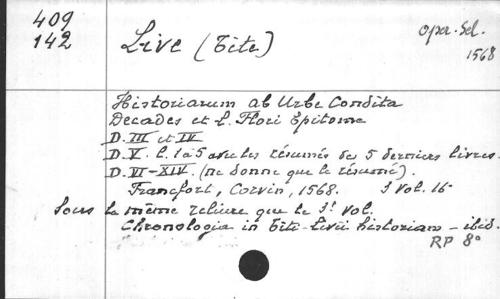 409
142
Live (Tite)
Oper. Sel.
1568
Historiarum ab Urbe Condita
Decades et L. Flori Epitome
D. III et IV
D. V. l. 1 à 5 avec les résumés des 5 derniers livres.
D. VI-XIV. (ne donne que le résumé).
Francfort, Corvin, 1568. 3 vol. 16-
Sous la même reliure que le 3! vol.
Chronologia in Tite-Livii historiam - ibid.
RP 8°